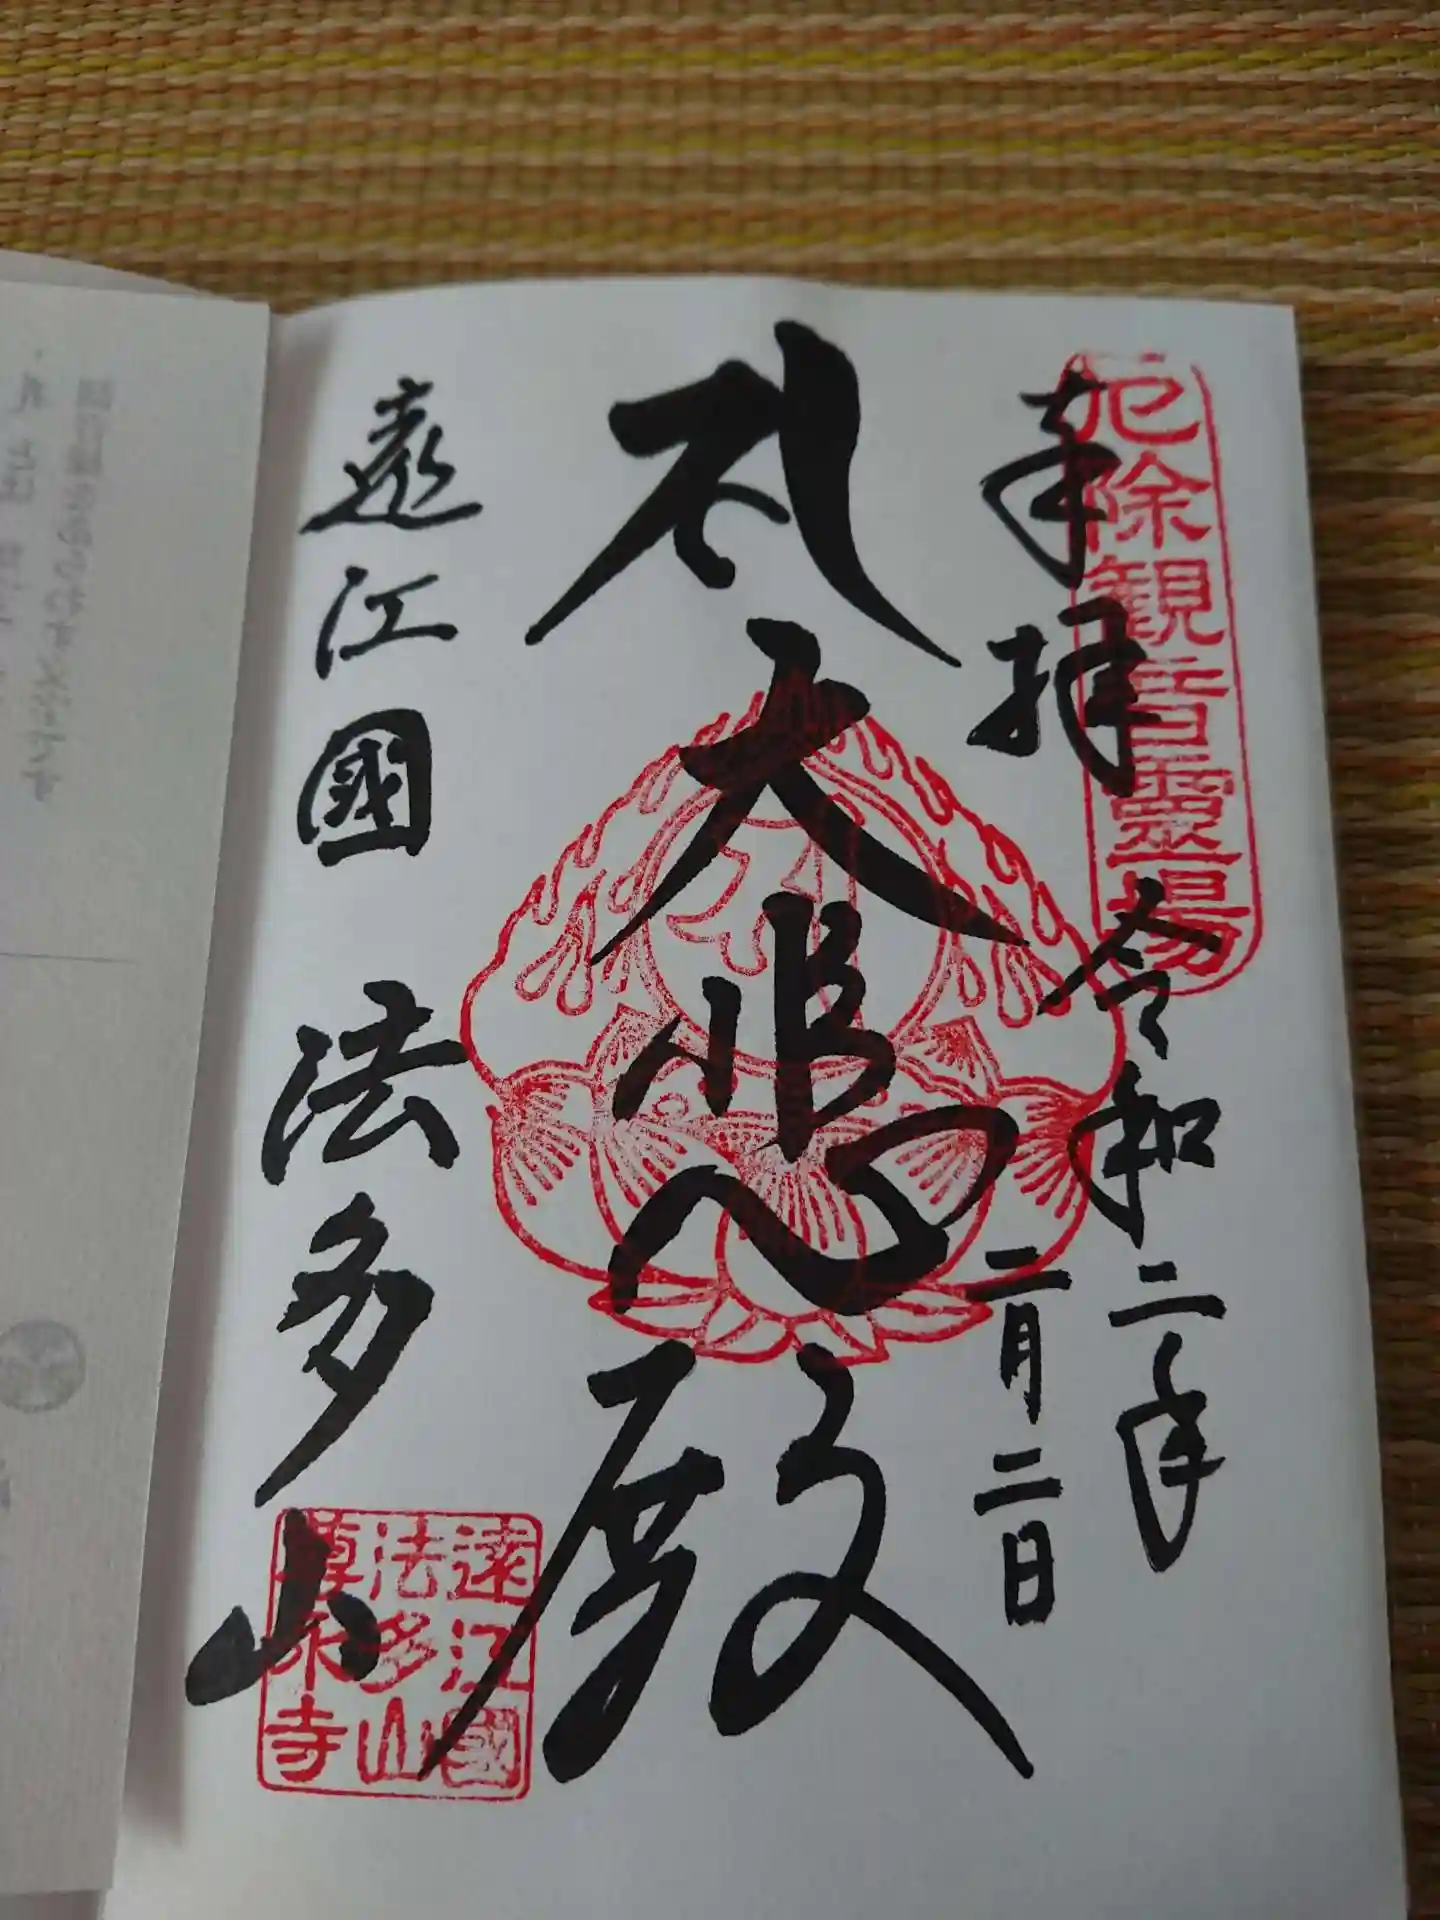 厄除観音霊場
奉拝
令和二年
二月二日
大悲殿
遠江國 法多山
遠江國
法多山
尊永寺